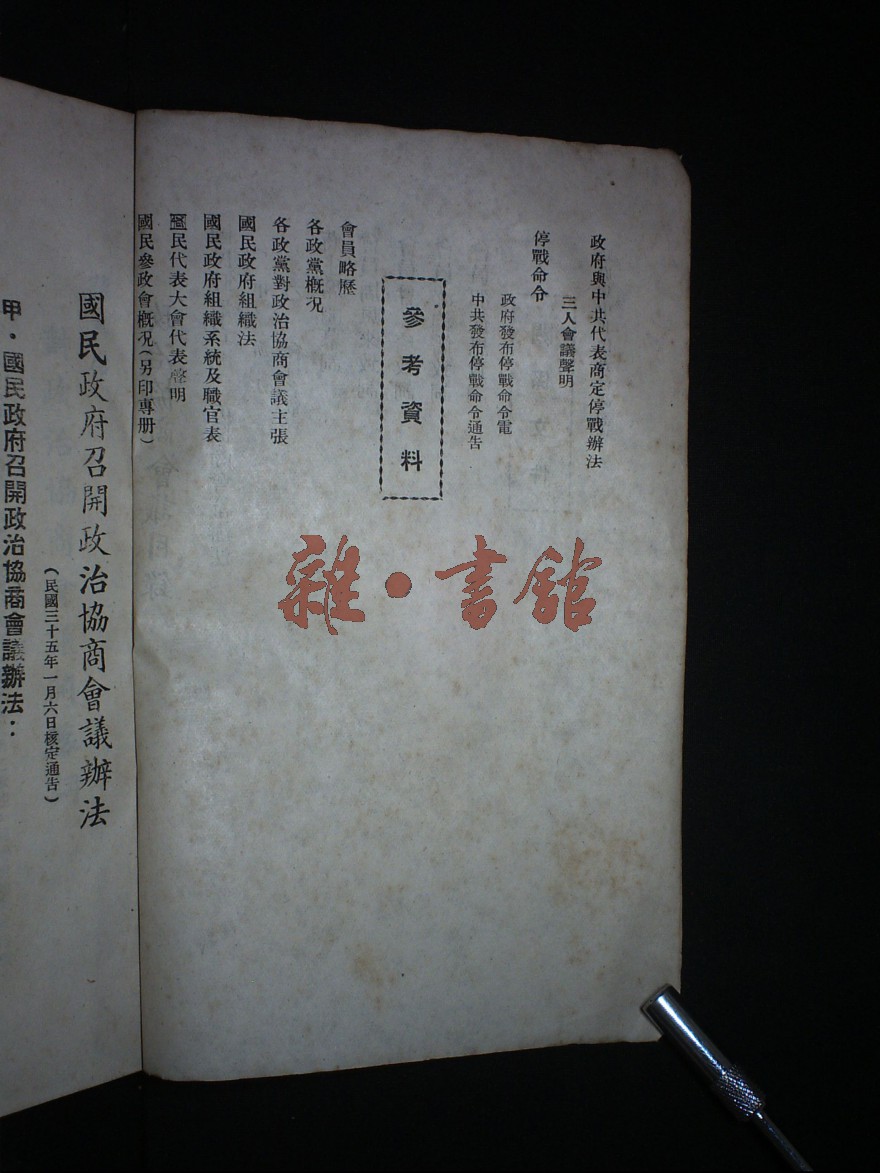 政府與中共代表商定停戰辦法
三人會議聲明
停戰命令
政府發布停戰命令電
中共發布停戰命令通告
參考資料
會員略歷
各政黨概況
各政黨對政治協商會議主張
國民政府組織法
國民政府組織系統及職官表
國民代表大會代表聲明
國民參政會概況(另印專册)
國民政府召開政治協商會議辦法
(民國三十五年一月六日核定通告)
甲・國民政府召開政治協商會議辦法:
雜・書館